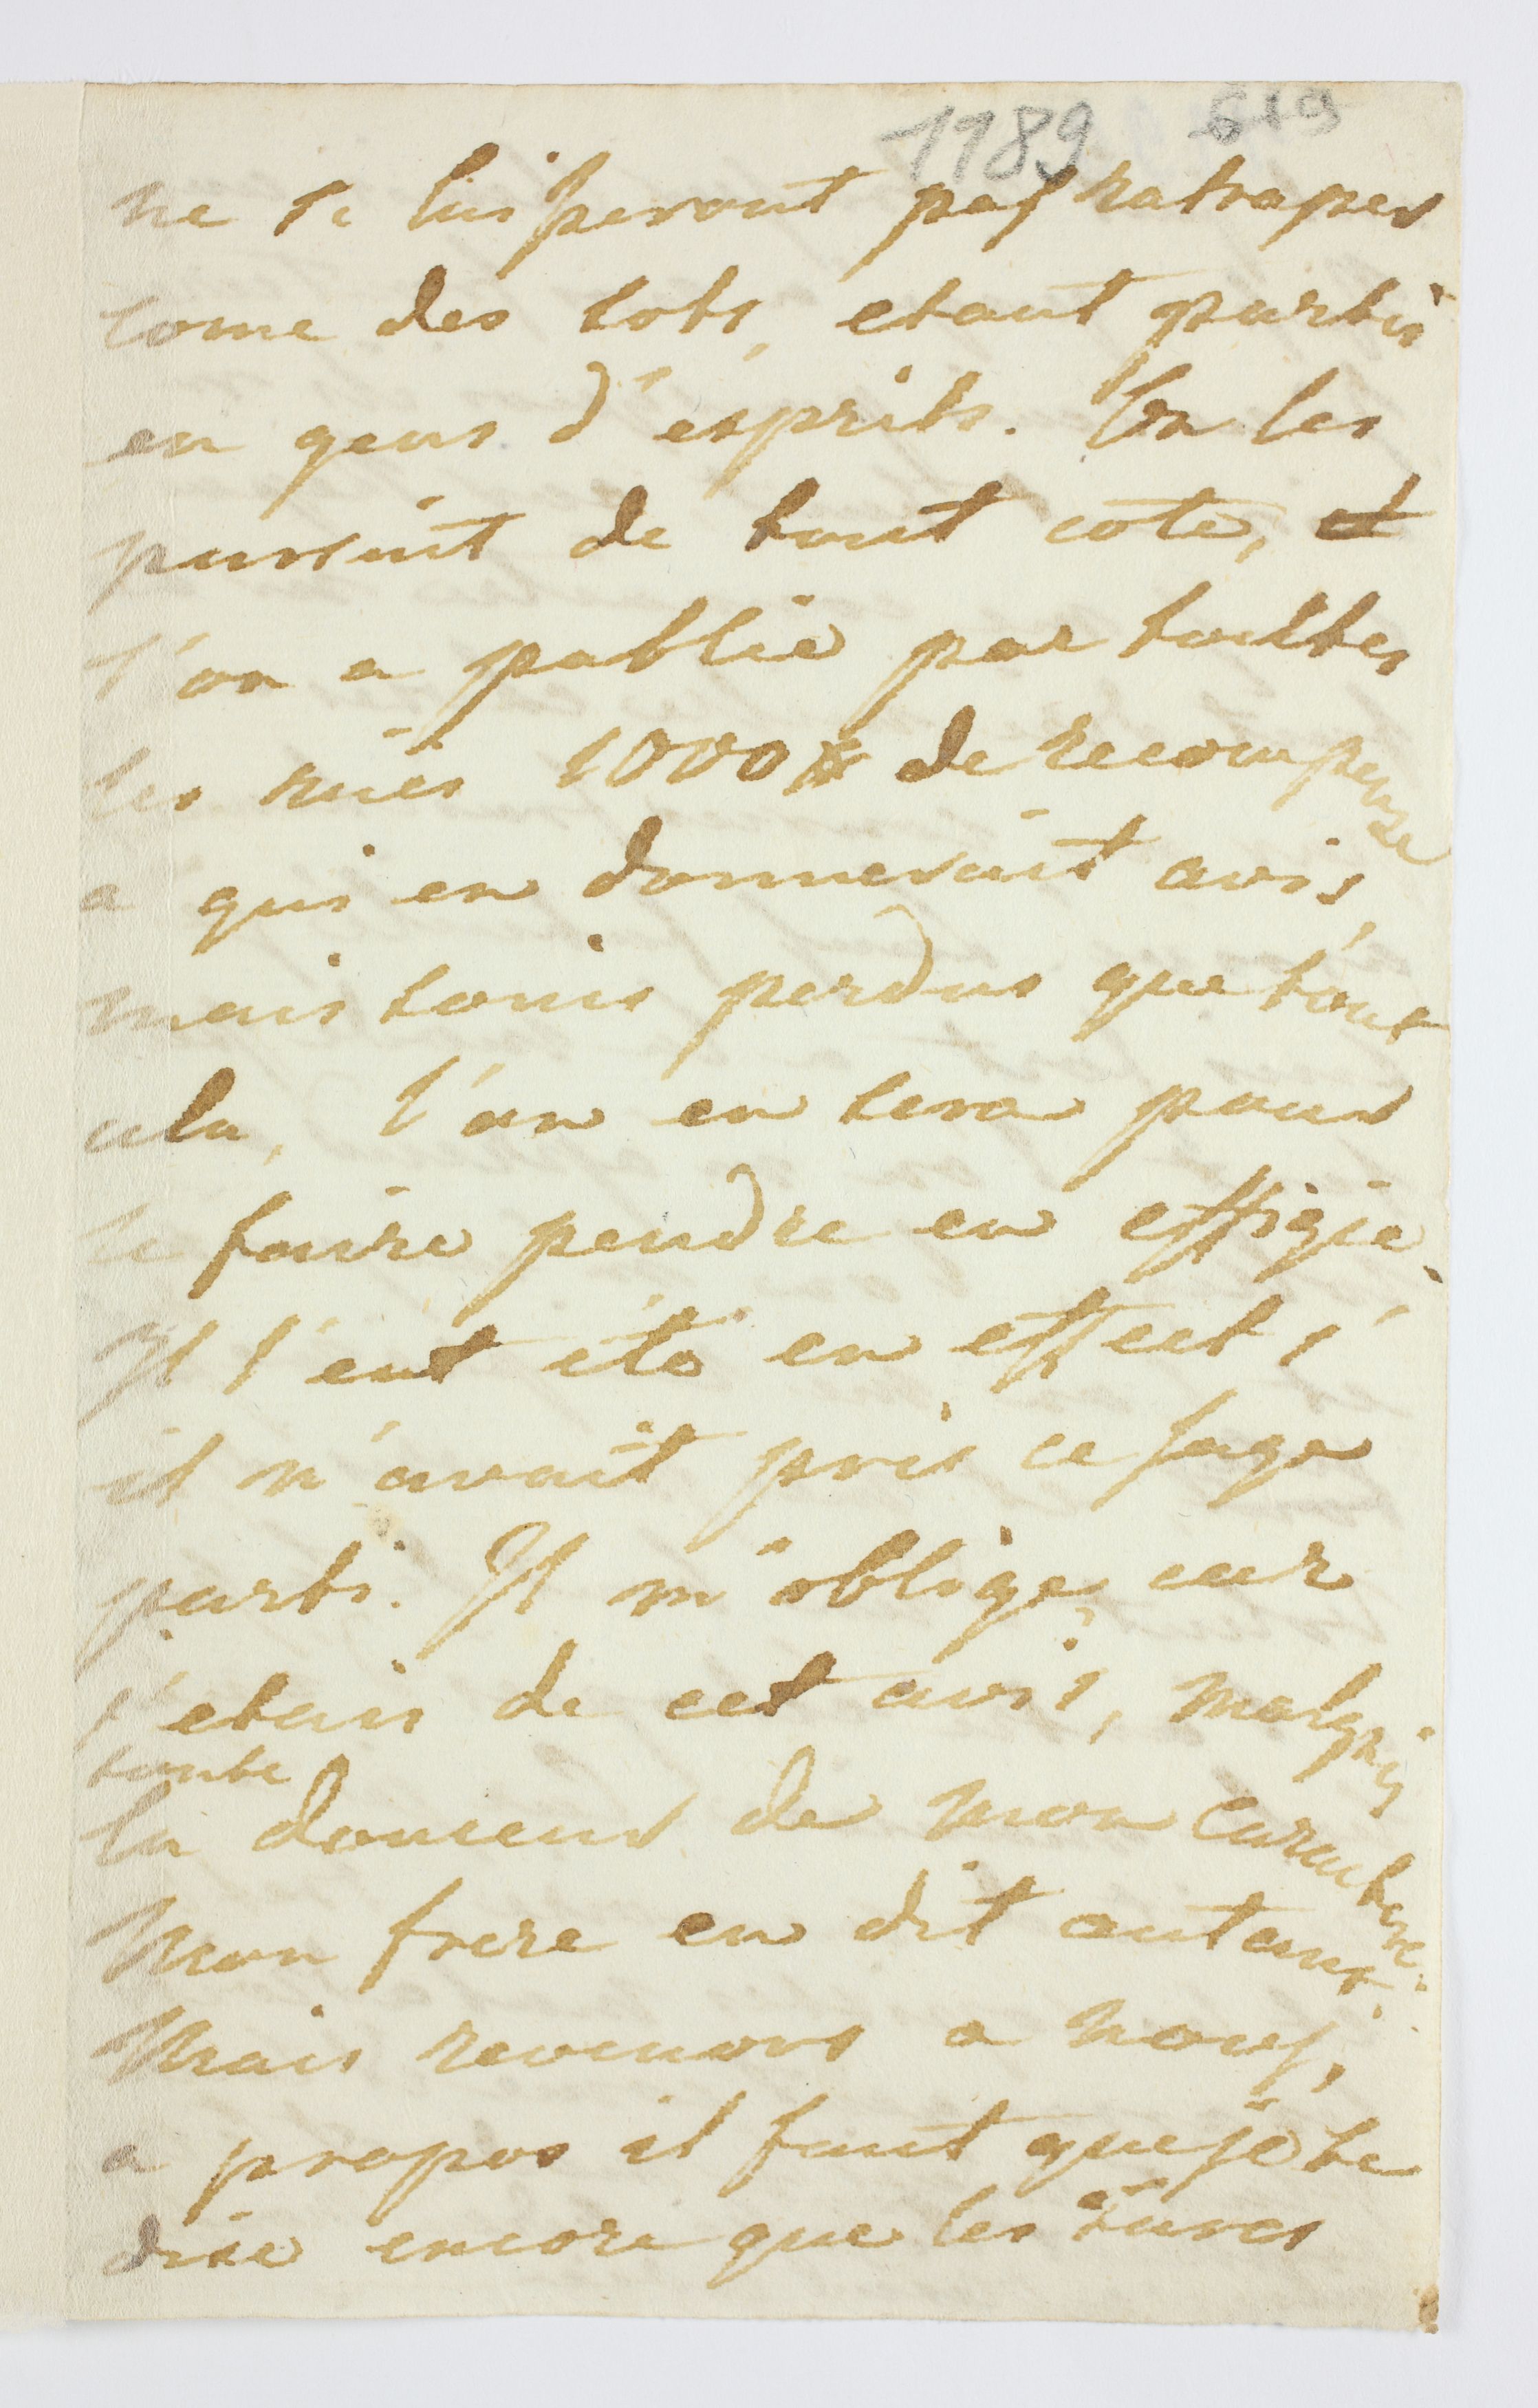 1189 619
ne se laisseront pas ratraper
come des sots, etant partis
en gens d'esprits. On les
pursuit de tout cote, et
l'on a publie par touttes
les ruës 1000# de recompense
a qui en donnerait avis,
mais soins perdus que tout
cela, l'on en sera pour
le faire pendre en effigie.
Il l'eut été en effect s'
il n'avait pris ce sage
parti. Il m'oblige, car
j'etais de cet avis, malgré
toute
la douceur de mon caractere.
Mon frere en dit autant.
Mais revenons a nous,
a propos il faut que je te
dise encore que les Turcs